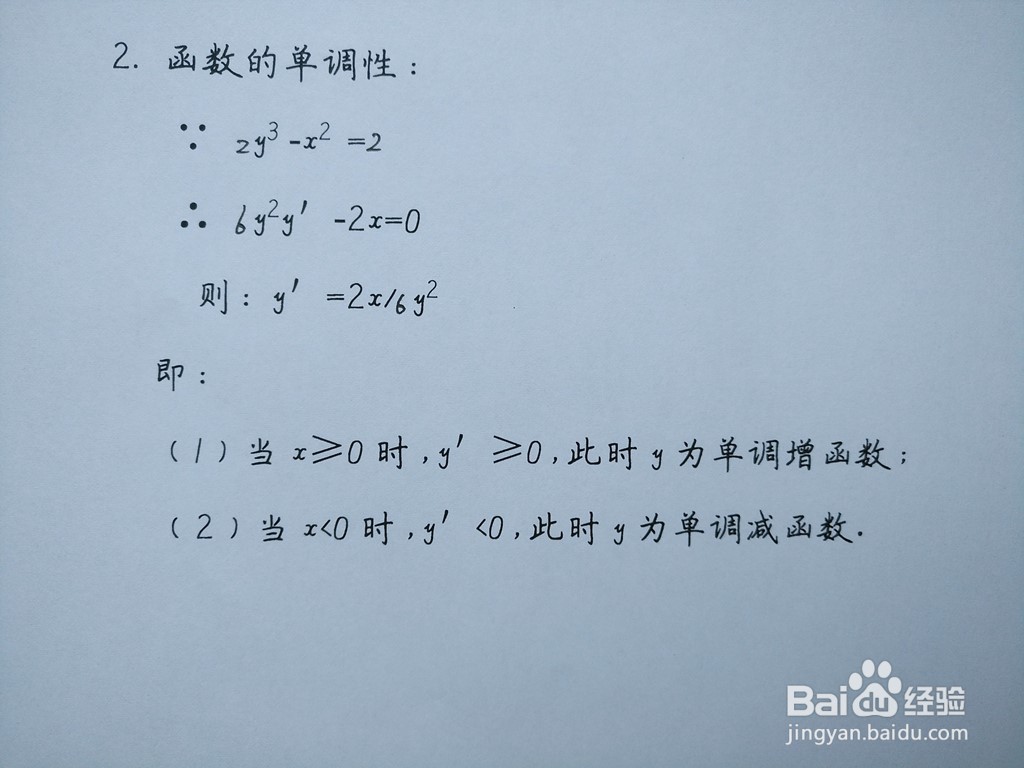 2. 函数的单调性:
∵ 2y³-x²=2
∴ 6y²y′-2x=0
则: y′=2x/6y²
即:
(1)当 x≥0 时,y′≥0,此时 y 为单调增函数;
(2)当 x<0 时,y′<0,此时 y 为单调减函数.
Bai du 经验
jingyan.baidu.com